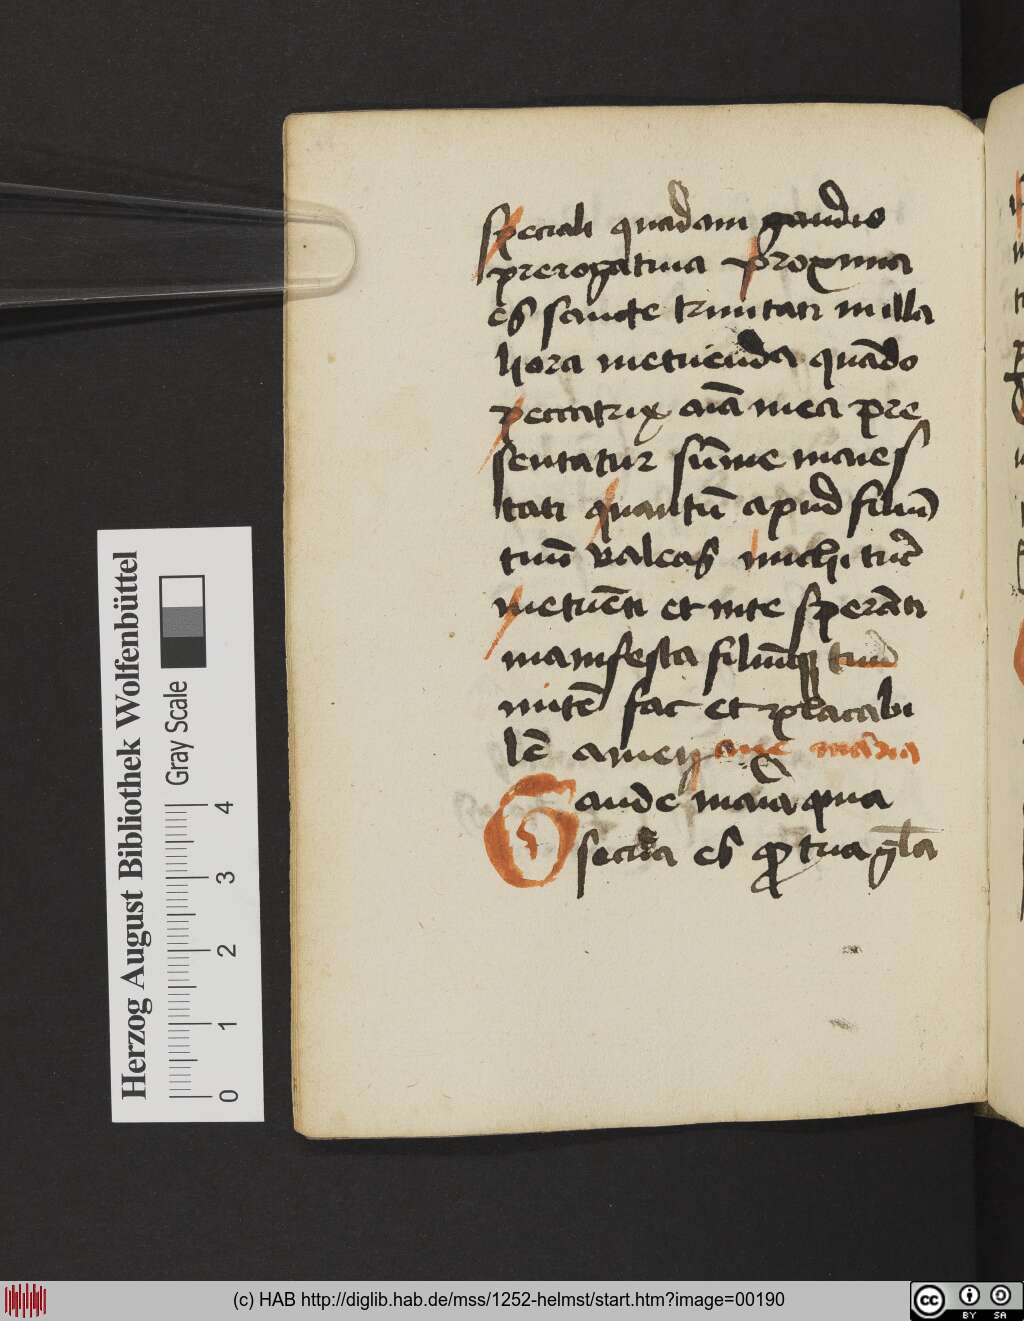 speciali quadam gaudio
prerogatiua proxima
es sancte trinitati in illa
hora metuenda quādo
peccatrix aīa mea pre
sentatur sūme maies
tati quantū apud filiū
tuū valeas michi tūc
metuēti et in te sperāti
manifesta filiūq tuū
mitē fac et placabi
lē amen aue maria
Gaude maria qua
secura es pro tua gla
Herzog August Bibliothek Wolfenbüttel
Gray Scale
0 1 2 3 4
(c) HAB http://diglib.hab.de/mss/1252-helmst/start.htm?image=00190
cc BY SA